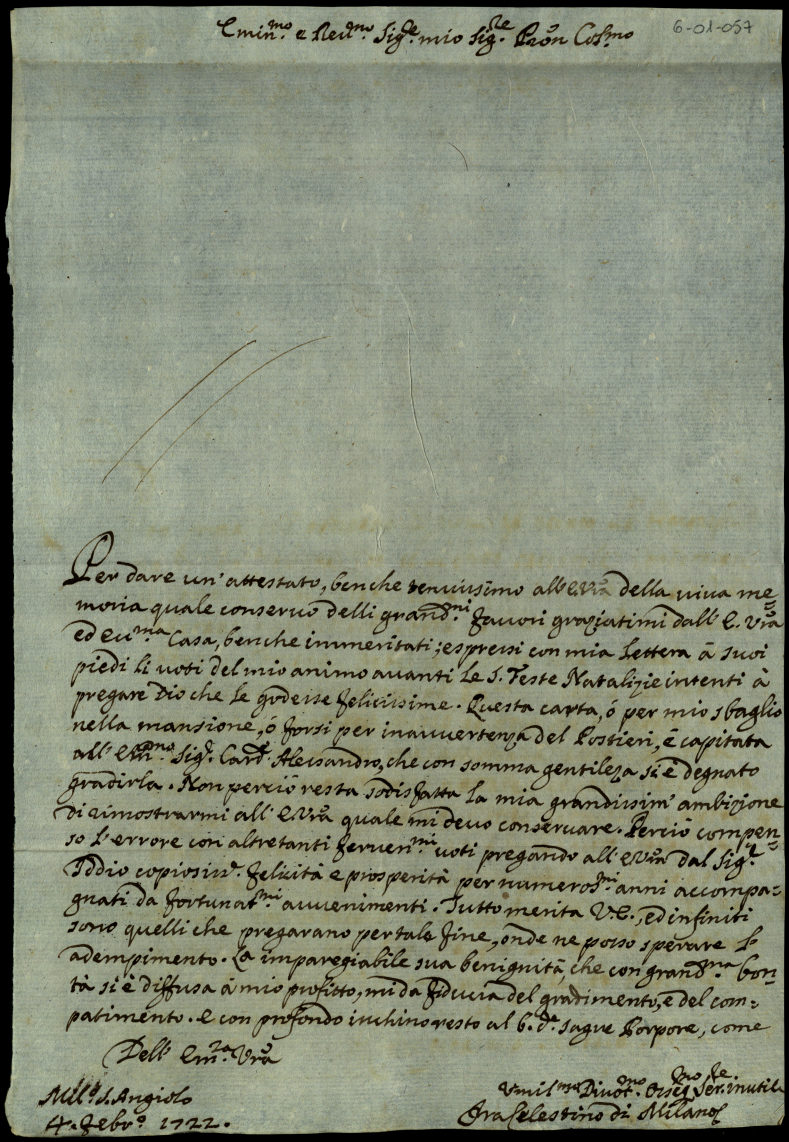 Emin.mo e Reu.mo Sig.re mio Sig.re Prōn Cols.mo
6-01-057
Per dare un' attestato, benche tenuissimo all' E. Vrā della viua me=
moria quale conseruo delli grand.mi fauori graziatimi dall' E. Vrā
ed ecc.ma Casa, benche immeritati; espressi con mia Lettera à suoi
piedi li uoti del mio animo auanti le S. Feste Natalizie intenti à
pregare Dio che le godesse felicissime. Questa carta, ó per mio sbaglio
nella mansione, ó forsi per inauuertenza del Postieri, è capitata
all' Em.mo Sig.r Card. Alessandro, che con somma gentileza si è degnato
gradirla. Non perciò resta sodisfatta la mia grandissim' ambizione
di rimostrarmi all' E. Vrā quale mi deuo conseruare. Perciò compen=
so l' errore con altretanti feruen.mi uoti pregando all' E. Vrā dal Sig.r
Iddio copiosiss.e felicità e prosperità per numeros.mi anni accompa=
gnati da fortunat.mi auuenimenti. Tutto merita V. E., ed infiniti
sono quelli che pregarano per tale fine, onde ne posso sperare l'
adempimento. La imparegiabile sua benignità, che con grand.ma bon=
tà si è diffusa à mio profitto, mi da fiducia del gradimento, e del com=
patimento. e con profondo inchino resto al b. d.a sagre Porpore, come
Dell' Em.za Vrā
Mil.o S. Angiolo
4. Febr.o 1722.
Vmil.mo Diuot.mo Osseq.mo Ser.re inutile
Fra Celestino di Milano